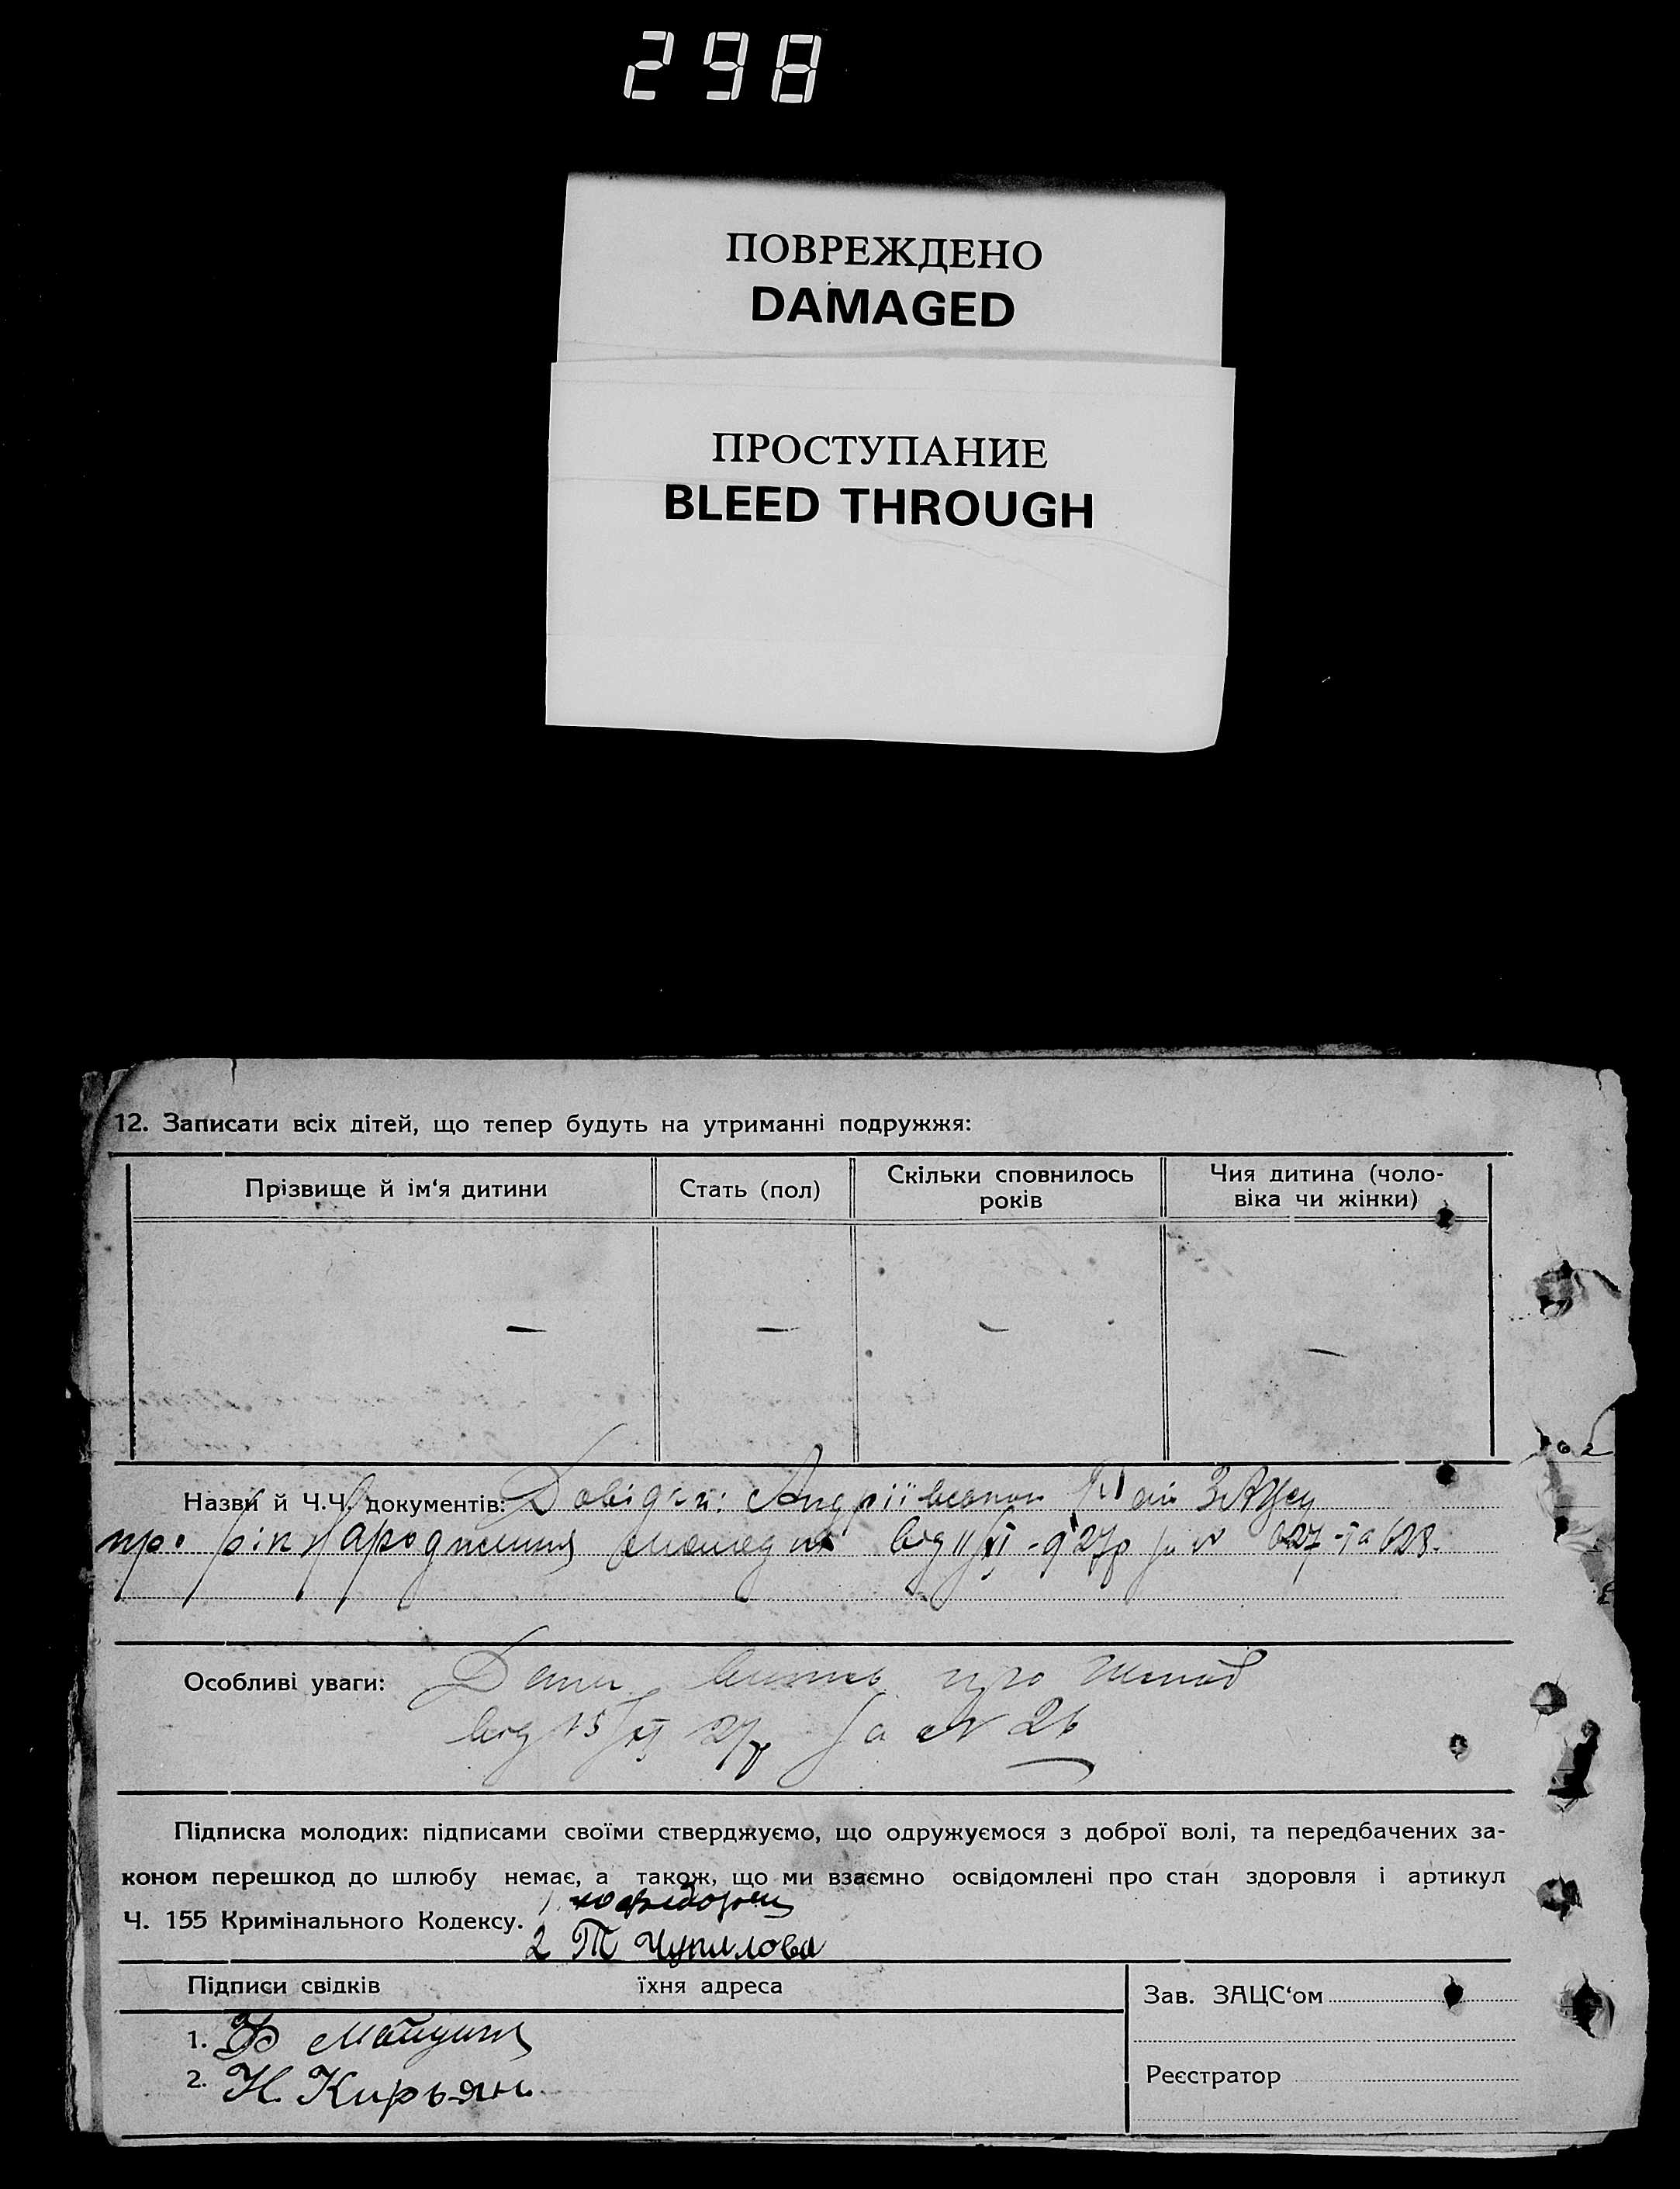 298
ПОВРЕЖДЕНО
DAMAGED
ПРОСТУПАНИЕ
BLEED THROUGH
12. Записати всіх дітей, що тепер будуть на утриманні подружжя:
Прізвище й ім‘я дитини
Стать (пол)
Скільки сповнилось
років
Чия дитина (чоло-
віка чи жінки)
— — — —
Назви й Ч.Ч. документів: Довідки: Рай ЗАЦСу
про рік народження молодих від 927р за № 627 - і а 628.
Особливі уваги: про шлюб
від 15/XI 27р за № 26
Підписка молодих: підписами своїми стверджуємо, що одружуємося з доброї волі, та передбачених за-
коном перешкод до шлюбу немає, а також, що ми взаємно освідомлені про стан здоровля і артикул
Ч. 155 Кримінального Кодексу. 1.
2 Т Чупилова
Підписи свідків
їхня адреса
1.
2. Н. Кирьян.
Зав. ЗАЦС‘ом
Реєстратор